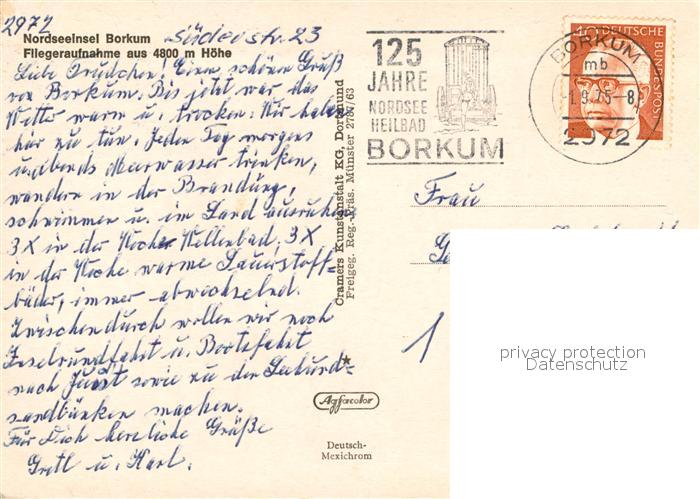 2972
Nordseeinsel Borkum
Süderstr. 23
Fliegeraufnahme aus 4800 m Höhe
Liebe Trudchen! Einen schönen Gruß
von Borkum. Bis jetzt war das
Wetter warm u. trocken. Wir haben
hier zu tun. Jeden Tag morgens
u. abends Meerwasser trinken,
wandern in der Brandung,
schwimmen u. im Sand ausruhen.
3X in der Woche Wellenbad. 3X
in der Woche warme Sauerstoff-
bäder, immer abwechselnd.
Zwischendurch wollen wir noch
Inselrundfahrt u. Bootsfahrt
nach Juist sowie zu den Seehund-
sandbänken machen.
Für Dich herzliche Grüße
Gretl u. Karl.
Cramers Kunstanstalt KG, Dortmund
Freigeg. Reg.-Präs. Münster 2787/63
Agfacolor
Deutsch-
Mexichrom
125
JAHRE
NORDSEE
HEILBAD
BORKUM
BORKUM
mb
-1.9.75-8
2972
40
DEUTSCHE BUNDESPOST
Frau
1
privacy protection
Datenschutz